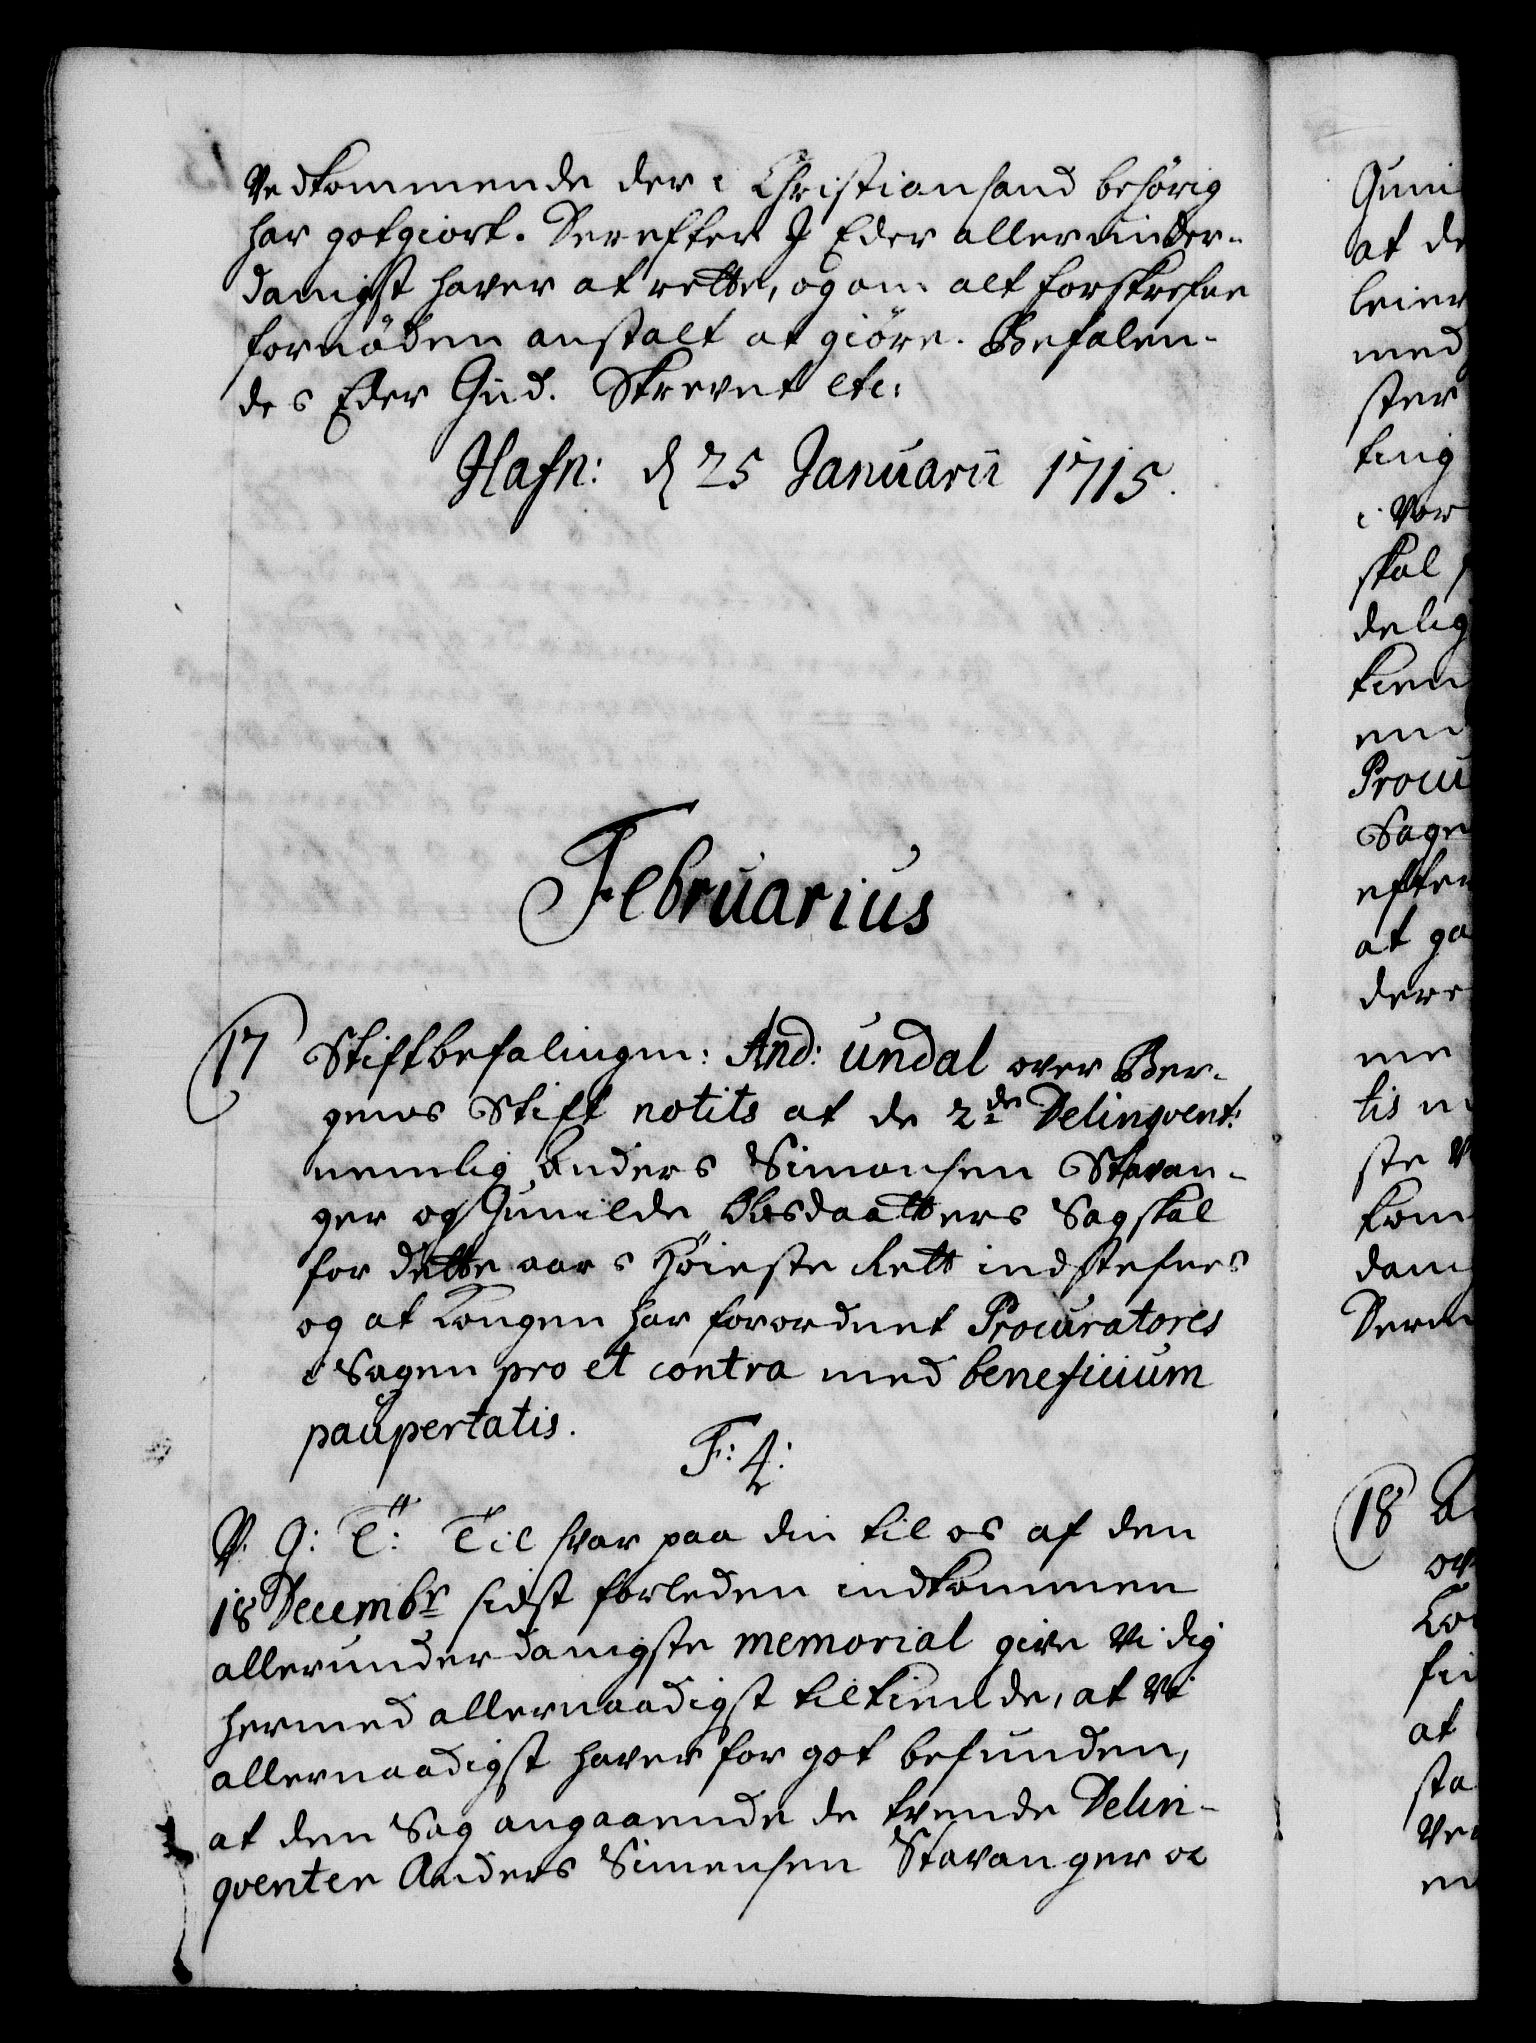 Vedkommende der i Christiansand behörig
har gotgiort. Derefter I Eder allerunder-
danigst haver at rette, og om alt forskrefne
fornöden anstalt at giöre. Befalen-
des Eder Gud. Skrevet etc:
Hafn: d 25 Januarii 1715.
Februarius
17 Stiftbefalingsm: And: Undal over Ber-
gens Stift notits at de 2de Delinqvent:
nemlig Anders Simonsen Stavan-
ger og Gunilde Olesdaatters Sag skal
for dette aars Höieste Rett indstefnes
og at Kongen har forordnet Procuratores
i Sagen pro et contra med beneficium
paupertatis.
F: 4:
V: G: T: Til svar paa din til os af den
18 Decembr sidst forleden indkommen
allerunderdanigste memorial give Vi dig
hermed allernaadigst tilkiende, at Vi
allernaadigst haver for got befunden,
at den Sag angaaende de tvende Delin-
qventer Anders Simensen Stavanger oc
Guni
at de
leier
med
ster
ting
i Vor
skal
delig
kien
end
Procu
Sage
efter
at ga
dere
me
tis
ste V
kom
dan
Derm
18
ov
Ko
fin
at
sta
Ve